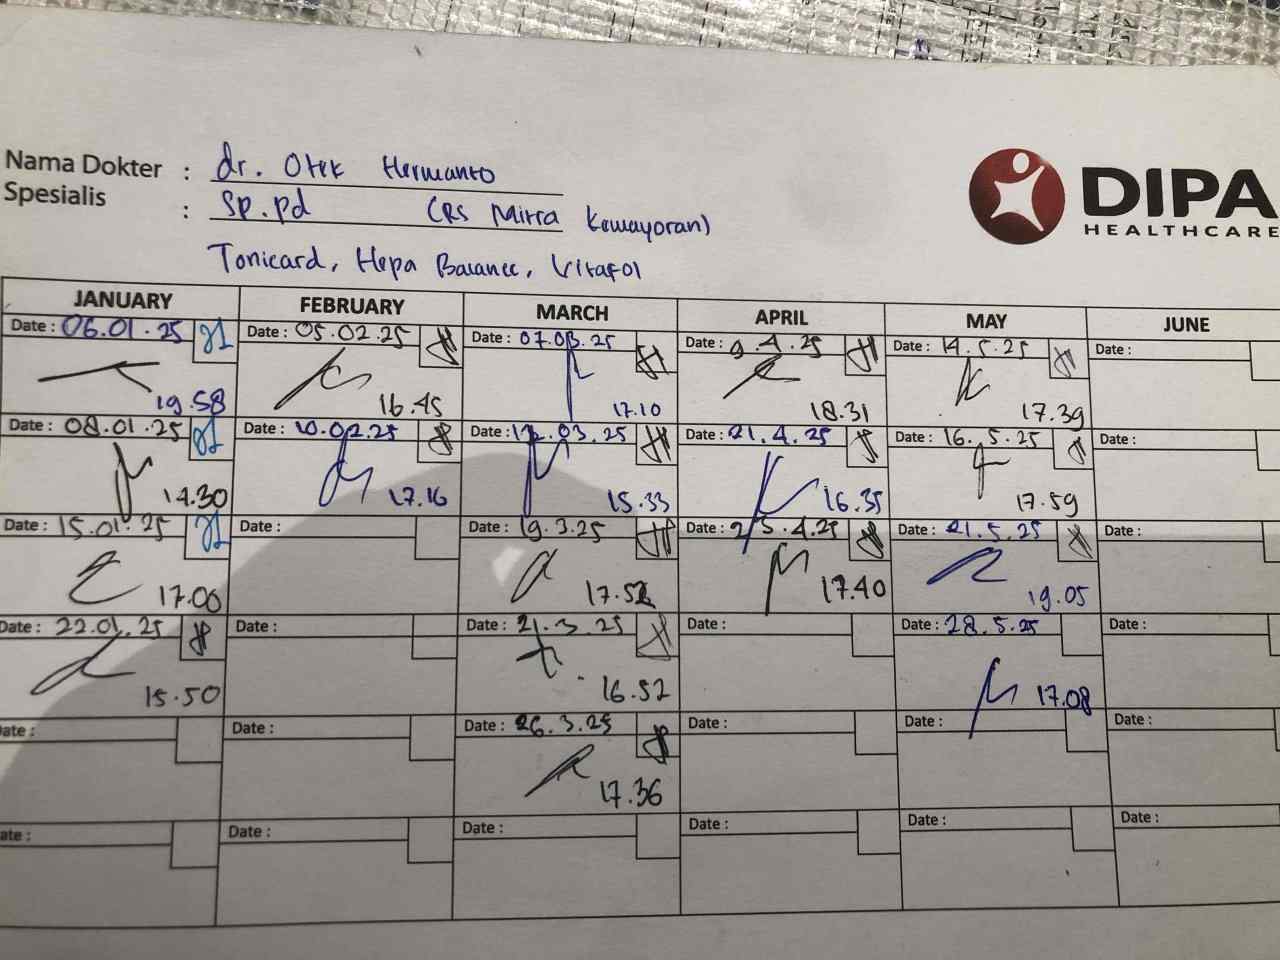 Nama Dokter : dr. Otek Hermanto
Spesialis : Sp.pd (RS Mitra Kemayoran)
DIPA
HEALTHCARE
Tonicard, Hepa Balance, Vitafol
JANUARY FEBRUARY MARCH APRIL MAY JUNE
Date : 06.01.25 Date : 05.02.25 Date : 07.03.25 Date : 9.4.25 Date : 14.5.25 Date :
19.58 16.45 17.10 18.31 17.39
Date : 08.01.25 Date : 10.02.25 Date : 12.03.25 Date : 21.4.25 Date : 16.5.25 Date :
14.30 17.16 15.33 16.35 17.59
Date : 15.01.25 Date : Date : 19.3.25 Date : 25.4.25 Date : 21.5.25 Date :
17.00 17.52 17.40 19.05
Date : 22.01.25 Date : Date : 21.3.25 Date : Date : 28.5.25 Date :
15.50 16.52 17.08
Date : Date : Date : 26.3.25 Date : Date : Date :
17.36
ate : Date : Date : Date : Date : Date :